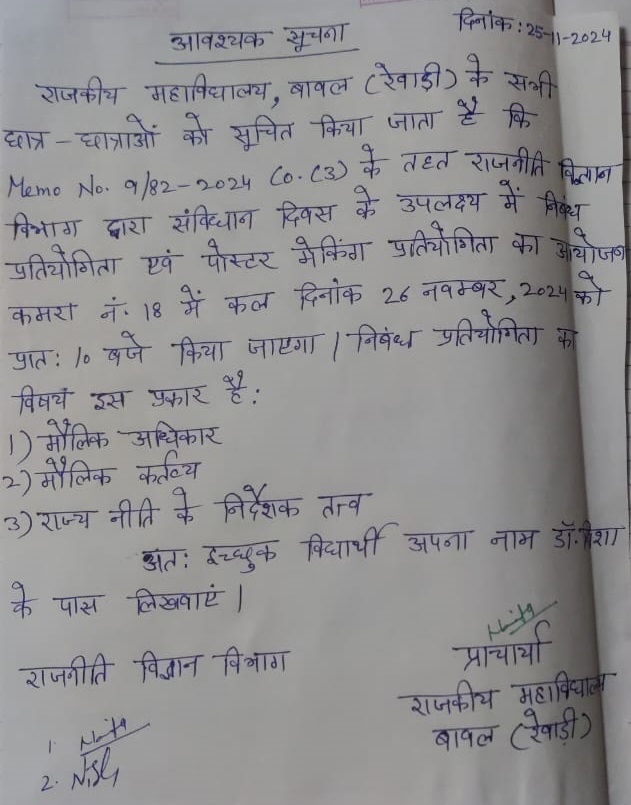 दिनांक: 25-11-2024
आवश्यक सूचना
राजकीय महाविद्यालय, बावल (रेवाड़ी) के सभी
छात्र - छात्राओं को सूचित किया जाता है कि
Memo No. 9/82-2024 Co. (3) के तहत राजनीति विज्ञान
विभाग द्वारा संविधान दिवस के उपलक्ष्य में निबंध
प्रतियोगिता एवं पोस्टर मेकिंग प्रतियोगिता का आयोजन
कमरा नं. 18 में कल दिनांक 26 नवम्बर, 2024 को
प्रात: 10 बजे किया जाएगा । निबंध प्रतियोगिता का
विषय इस प्रकार है :
1) मौलिक अधिकार
2) मौलिक कर्तव्य
3) राज्य नीति के निर्देशक तत्व
अत: इच्छुक विद्यार्थी अपना नाम डॉ.
के पास लिखवाएं ।
राजनीति विज्ञान विभाग
प्राचार्या
राजकीय महाविद्यालय
बावल (रेवाड़ी)
1.
2.